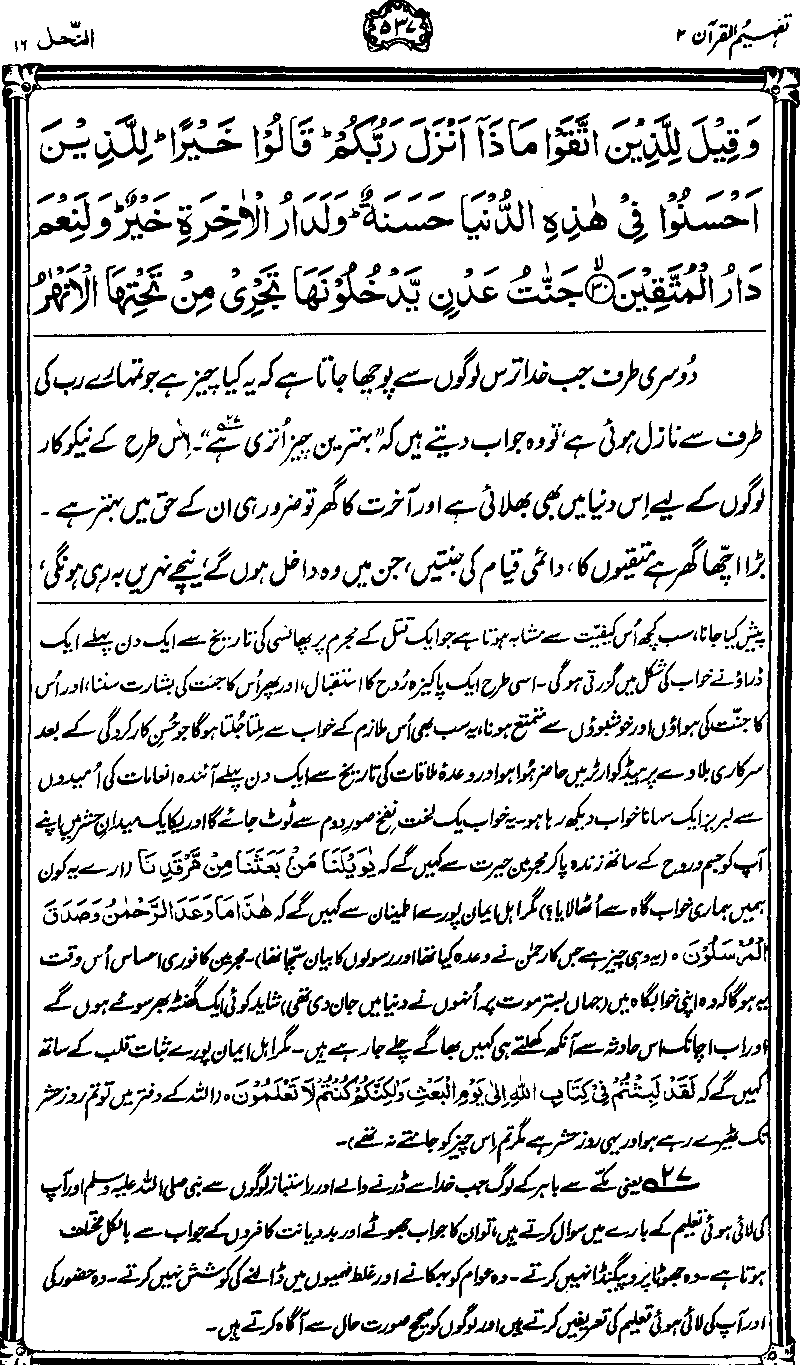 تفہیم القرآن ۲
۵۳۷
النّحل ۱۶
وَقِيْلَ لِلَّذِيْنَ اتَّقَوْا مَاذَاۤ اَنْزَلَ رَبُّكُمْ ؕ قَالُوْا خَيْرًا ؕ لِلَّذِيْنَ
اَحْسَنُوْا فِيْ هٰذِهِ الدُّنْيَا حَسَنَةٌ ؕ وَلَدَارُ الْاٰخِرَةِ خَيْرٌ ؕ وَلَنِعْمَ
دَارُ الْمُتَّقِيْنَ ۙ﴿۳۰﴾ جَنّٰتُ عَدْنٍ يَّدْخُلُوْنَهَا تَجْرِيْ مِنْ تَحْتِهَا الْاَنْهٰرُ
دُوسری طرف جب خدا ترس لوگوں سے پوچھا جاتا ہے کہ یہ کیا چیز ہے جو تمہارے رب کی
طرف سے نازل ہوئی ہے، تو وہ جواب دیتے ہیں کہ ”بہترین چیز اُتری ہے“۲۷۔ اِس طرح کے نیکوکار
لوگوں کے لیے اِس دنیا میں بھی بھلائی ہے اور آخرت کا گھر تو ضرور ہی ان کے حق میں بہتر ہے۔
بڑا اچھا گھر ہے متقیوں کا، دائمی قیام کی جنتیں، جن میں وہ داخل ہوں گے، نیچے نہریں بہ رہی ہونگی،
پیش کیا جانا، سب کچھ اُس کیفیت سے مشابہ ہوتا ہے جو ایک قتل کے مجرم پر پھانسی کی تاریخ سے ایک دن پہلے ایک
ڈراؤنے خواب کی شکل میں گزرتی ہوگی۔ اسی طرح ایک پاکیزہ رُوح کا استقبال، اور پھر اُس کا جنت کی بشارت سننا، اور اُس
کا جنّت کی ہواؤں اور خوشبوؤں سے متمتع ہونا، یہ سب بھی اُس ملازم کے خواب سے ملتا جُلتا ہوگا جو حُسنِ کارکردگی کے بعد
سرکاری بلاوے پر ہیڈکوارٹر میں حاضر ہُوا ہو اور وعدۂ ملاقات کی تاریخ سے ایک دن پہلے آئندہ انعامات کی اُمیدوں
سے لبریز ایک سہانا خواب دیکھ رہا ہو۔ یہ خواب یک لخت نفخِ صورِ دوم سے ٹوٹ جائے گا اور یکایک میدانِ حشر میں اپنے
آپ کو جسم و روح کے ساتھ زندہ پا کر مجرمین حیرت سے کہیں گے کہ يٰوَيْلَنَا مَنْۢ بَعَثَنَا مِنْ مَّرْقَدِنَا (ارے یہ کون
ہمیں ہماری خواب گاہ سے اُٹھا لایا؟) مگر اہل ایمان پورے اطمینان سے کہیں گے کہ هٰذَا مَا وَعَدَ الرَّحْمٰنُ وَصَدَقَ
الْمُرْسَلُوْنَ ہ (یہ وہی چیز ہے جس کا رحمٰن نے وعدہ کیا تھا اور رسولوں کا بیان سچّا تھا)۔ مجرمین کا فوری احساس اُس وقت
یہ ہوگا کہ وہ اپنی خوابگاہ میں (جہاں بسترِ موت پر اُنہوں نے دنیا میں جان دی تھی) شاید کوئی ایک گھنٹہ بھر سوئے ہوں گے
اور اب اچانک اس حادثہ سے آنکھ کھلتے ہی کہیں بھاگے چلے جا رہے ہیں۔ مگر اہلِ ایمان پورے ثباتِ قلب کے ساتھ
کہیں گے کہ لَقَدْ لَبِثْتُمْ فِيْ كِتَابِ اللهِ اِلٰى يَوْمِ الْبَعْثِ وَلٰكِنَّكُمْ كُنْتُمْ لَا تَعْلَمُوْنَ ہ (اللہ کے دفتر میں تو تم روزِ حشر
تک ٹھیرے رہے ہو اور یہی روزِ حشر ہے مگر تم اِس چیز کو جانتے نہ تھے)۔
۲۷ یعنی مکّے سے باہر کے لوگ جب خدا سے ڈرنے والے اور راستباز لوگوں سے نبی صلی اللہ علیہ وسلم اور آپ
کی لائی ہوئی تعلیم کے بارے میں سوال کرتے ہیں، تو ان کا جواب جھوٹے اور بددیانت کافروں کے جواب سے بالکل مختلف
ہوتا ہے۔ وہ جھوٹا پروپیگنڈا نہیں کرتے۔ وہ عوام کو بہکانے اور غلط فہمیوں میں ڈالنے کی کوشش نہیں کرتے۔ وہ حضور کی
اور آپ کی لائی ہوئی تعلیم کی تعریفیں کرتے ہیں اور لوگوں کو صحیح صورتِ حال سے آگاہ کرتے ہیں۔